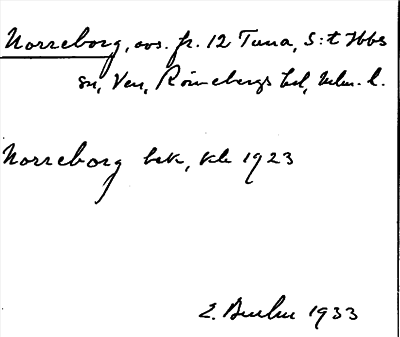 Norreborg, avs. fr. 12 Tuna, S:t Ibbs
sn, Ven, Rönnebergs hd, Mlm. l.
Norreborg bek, kb 1923
1933